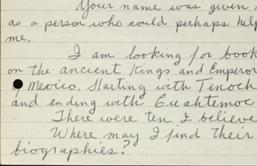 Your name was given
as a person who could perhaps help
me.
I am looking for book
on the ancient Kings and Emperor
Mexico. Starting with Tinoch
and ending with Cuahtemoc
There were ten I believe
Where may I find their
biographies?